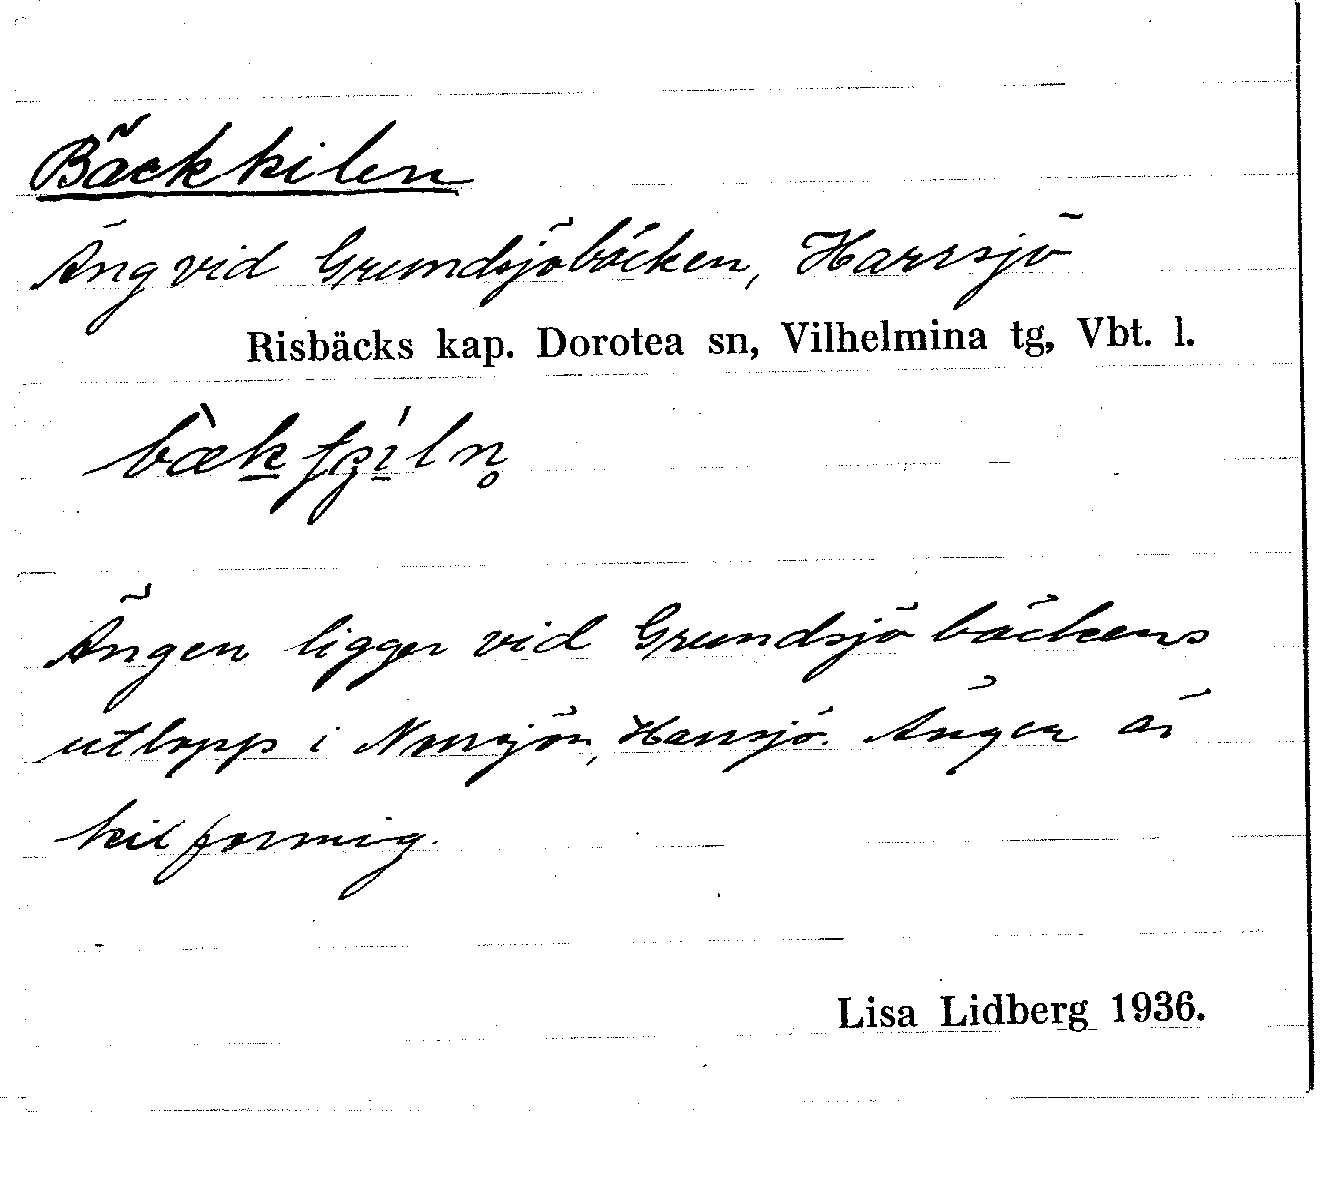 Bäckkilen
Äng vid Grundsjöbäcken, Harrsjö
Risbäcks kap. Dorotea sn, Vilhelmina tg, Vbt. l.
Ängen ligger vid Grundsjöbäckens
utlopp i Norrsjön, Harrsjö. Ängen är
kilformig.
Lisa Lidberg 1936.